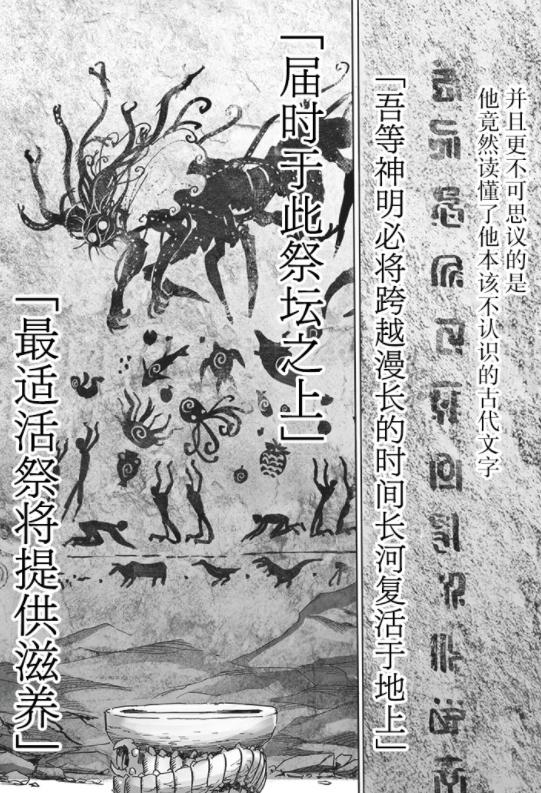 并且更不可思议的是
他竟然读懂了他本该不认识的古代文字
「吾等神明必将跨越漫长的时间长河复活于地上」
「届时于此祭坛之上」
「最适活祭将提供滋养」